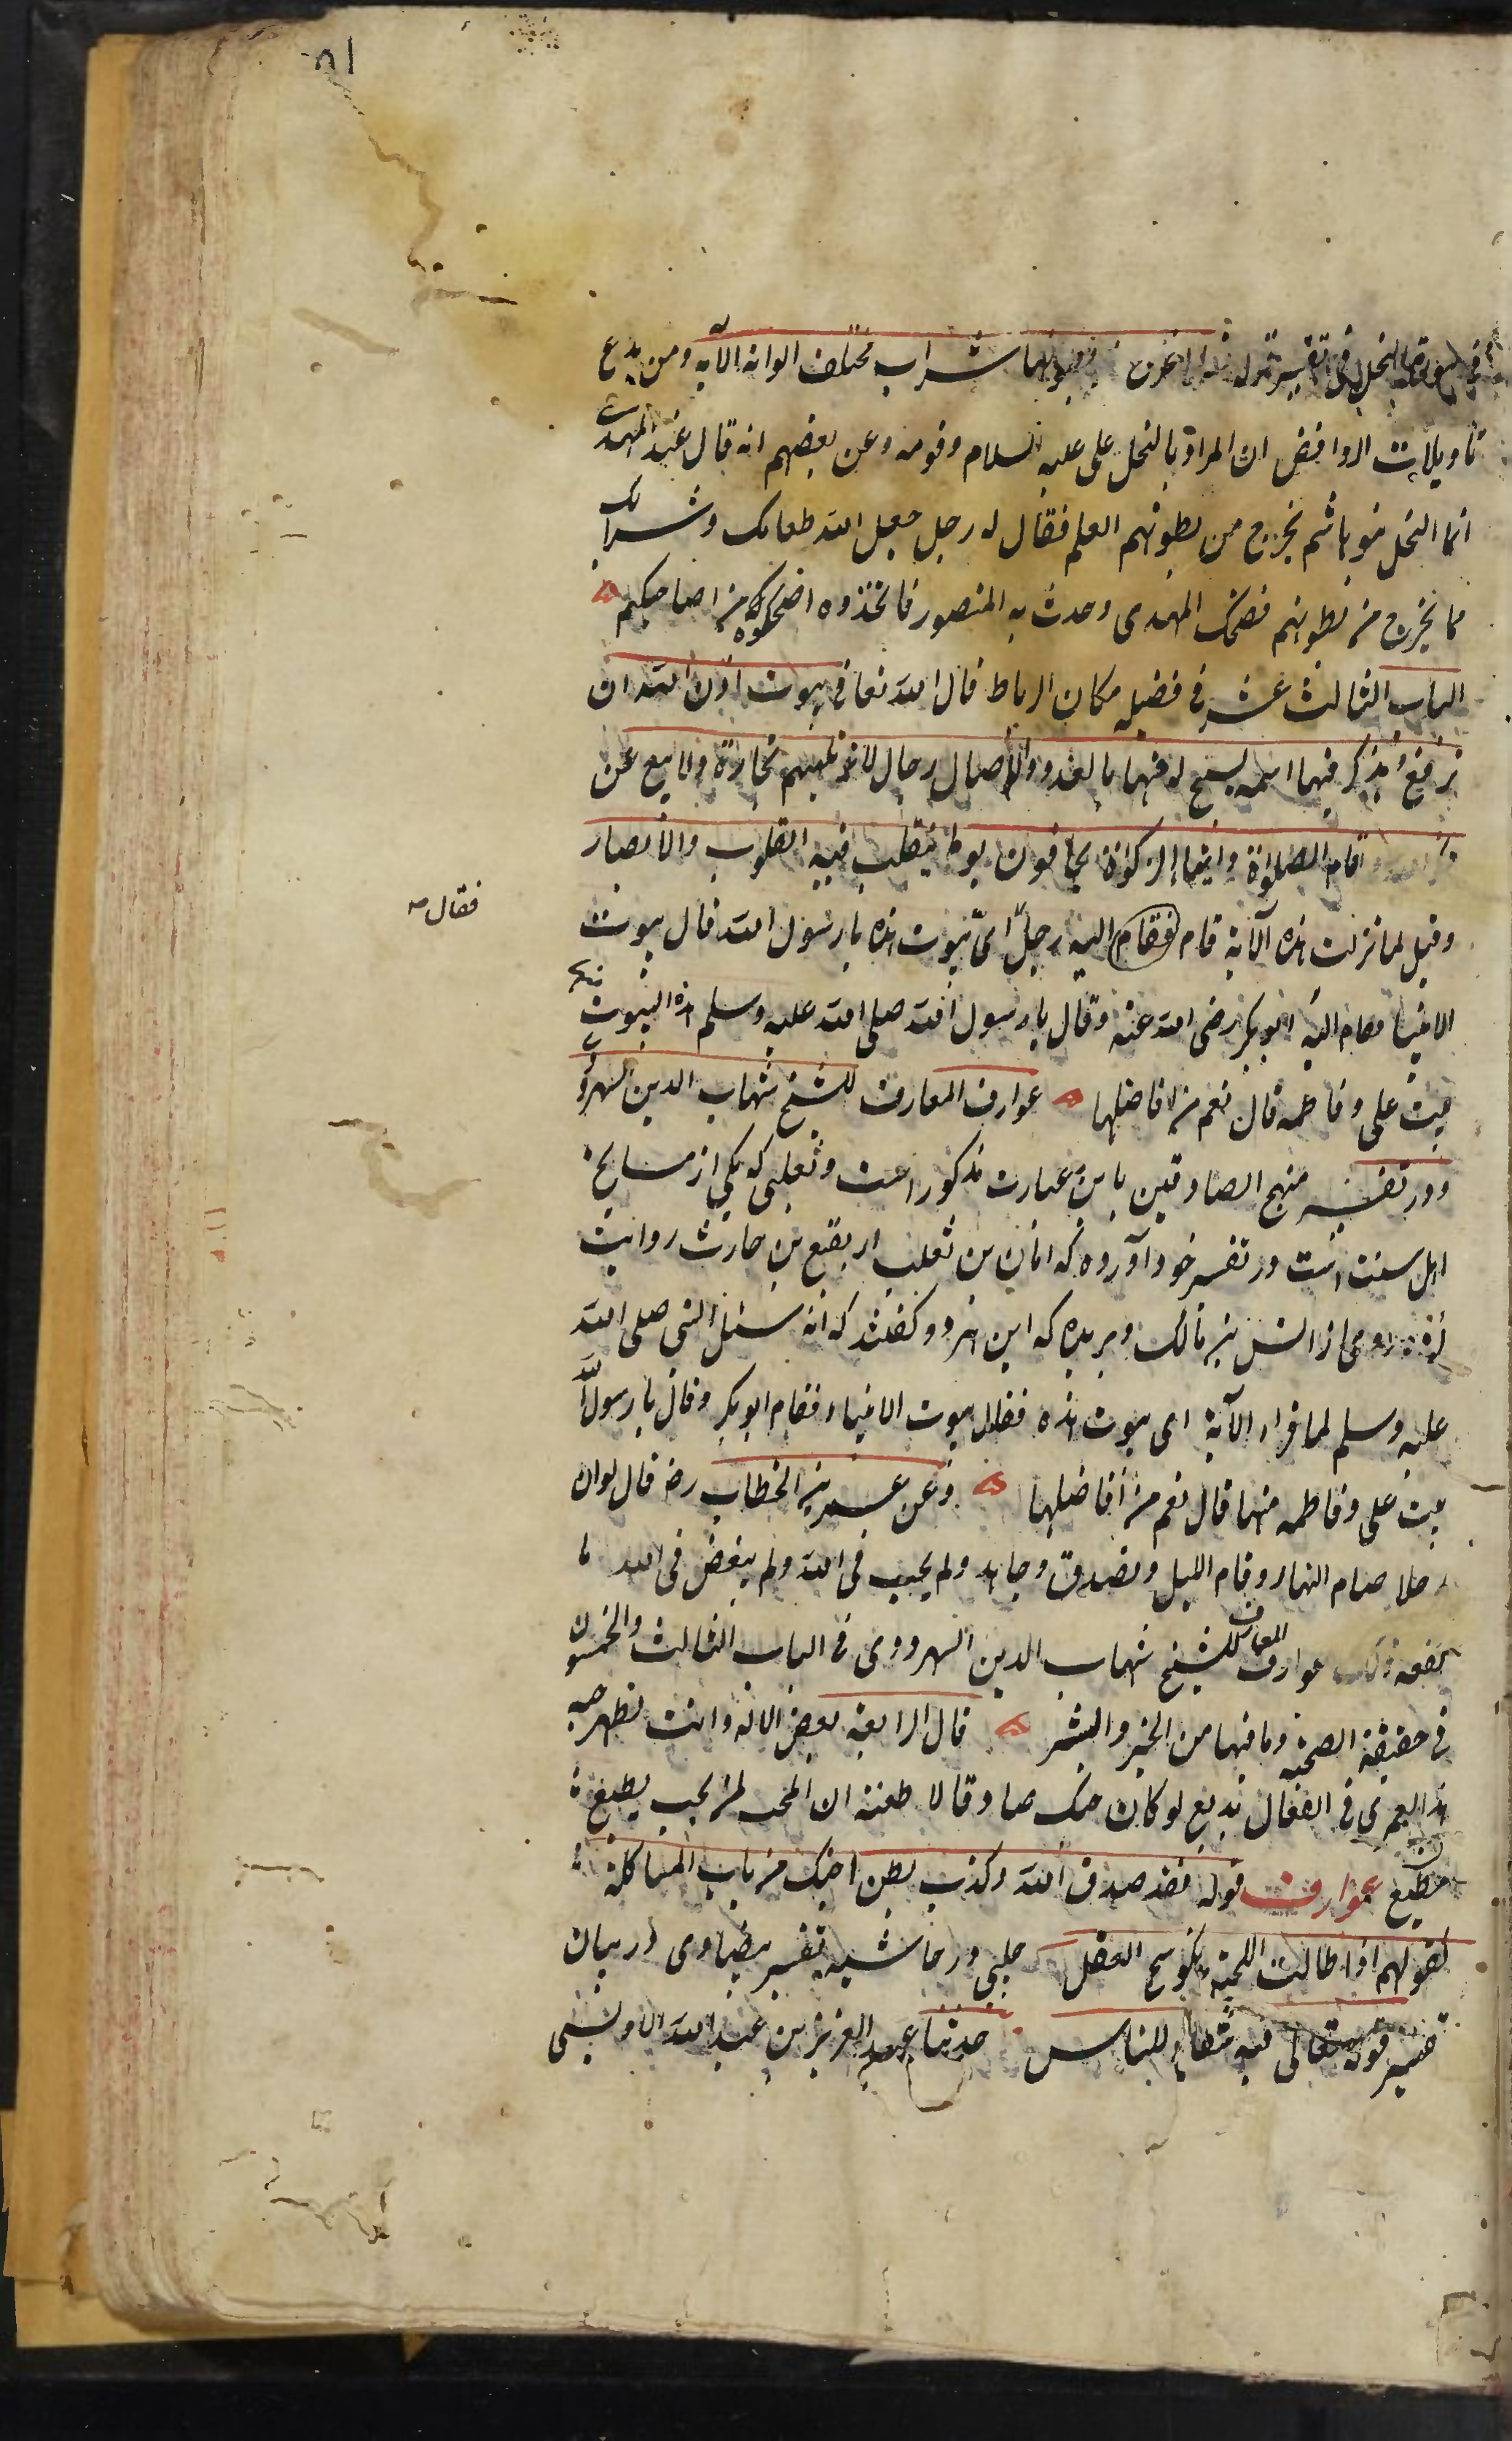 فی سورة النحل فی تفسیر قوله یخرج من بطونها شراب مختلف الوانه الآیه ومن بدع
تاویلات الروافض ان المراد بالنحل علی علیه السلام وقومه وعن بعضهم انه قال عند المهدی
انما النحل بنو هاشم یخرج من بطونهم العلم فقال له رجل جعل الله طعامک وشرابک
مما یخرج من بطونهم فضحک المهدی وحدث به المنصور فاتخذوه اضحوکة من اضاحیکهم
الباب الثالث عشر فی فضیله مکان الرباط قال الله تعا فی بیوت اذن الله ان
ترفع ویذکر فیها اسمه یسبح له فیها بالغدو والآصال رجال لا تلهیهم تجارة ولا بیع عن
اقام الصلوٰة وایتاء الزکوٰة یخافون یوما یتقلب فیه القلوب والأبصار
وقیل لما نزلت هذه الآیة قام فقام الیه رجل ایّ بیوت هذه یا رسول الله قال بیوت
فقال
الانبیا فقام الیه ابو بکر رضی الله عنه وقال یا رسول الله صلی الله علیه وسلم هذه البیوت منها
بیت علی وفاطمه قال نعم من افاضلها عوارف المعارف للشیخ شهاب الدین السهرورد
ودر تفسیر منهج الصادقین باین عبارت مذکور است وثعلبی که یکی از مشایخ
اهل سنت است در تفسیر خود آورده که ابان بن تغلب از نفیع بن حارث روایت
از انس بن مالک وبریده که این هر دو گفتند که انه سئل النبی صلی الله
علیه وسلم لما قراء الآیة ای بیوت هذه فقال بیوت الانبیاء فقام ابو بکر وقال یا رسول الله
بیت علی وفاطمه منها قال نعم من أفاضلها وعن عمر بن الخطاب رضه قال لوان
رجلا صام النهار وقام اللیل وتصدق وجاهد ولم یحب فی الله ولم یبغض فی الله ما
نفعه ذلک عوارف المعارف للشیخ شهاب الدین السهروردی فی الباب الثالث والخمسون
فی حقیقة الصحبة وما فیها من الخیر والشر قال الرابعة تعصی الاله وانت تظهر حبه
هذا لعمری فی الفعال بدیع لو کان حبک صادقا لاطعته ان المحب لمن یحب یطیع
مطیع عوارف قوله فقد صدق الله وکذب بطن اخیک من باب المشاکلة
کقولهم اذا طالت اللحیة تکوسج العقل چلبی در حاشیه تفسیر بیضاوی در بیان
تفسیر قوله تعالی فیه شفاء للناس حدثنا عبد العزیز بن عبد الله الاویسی